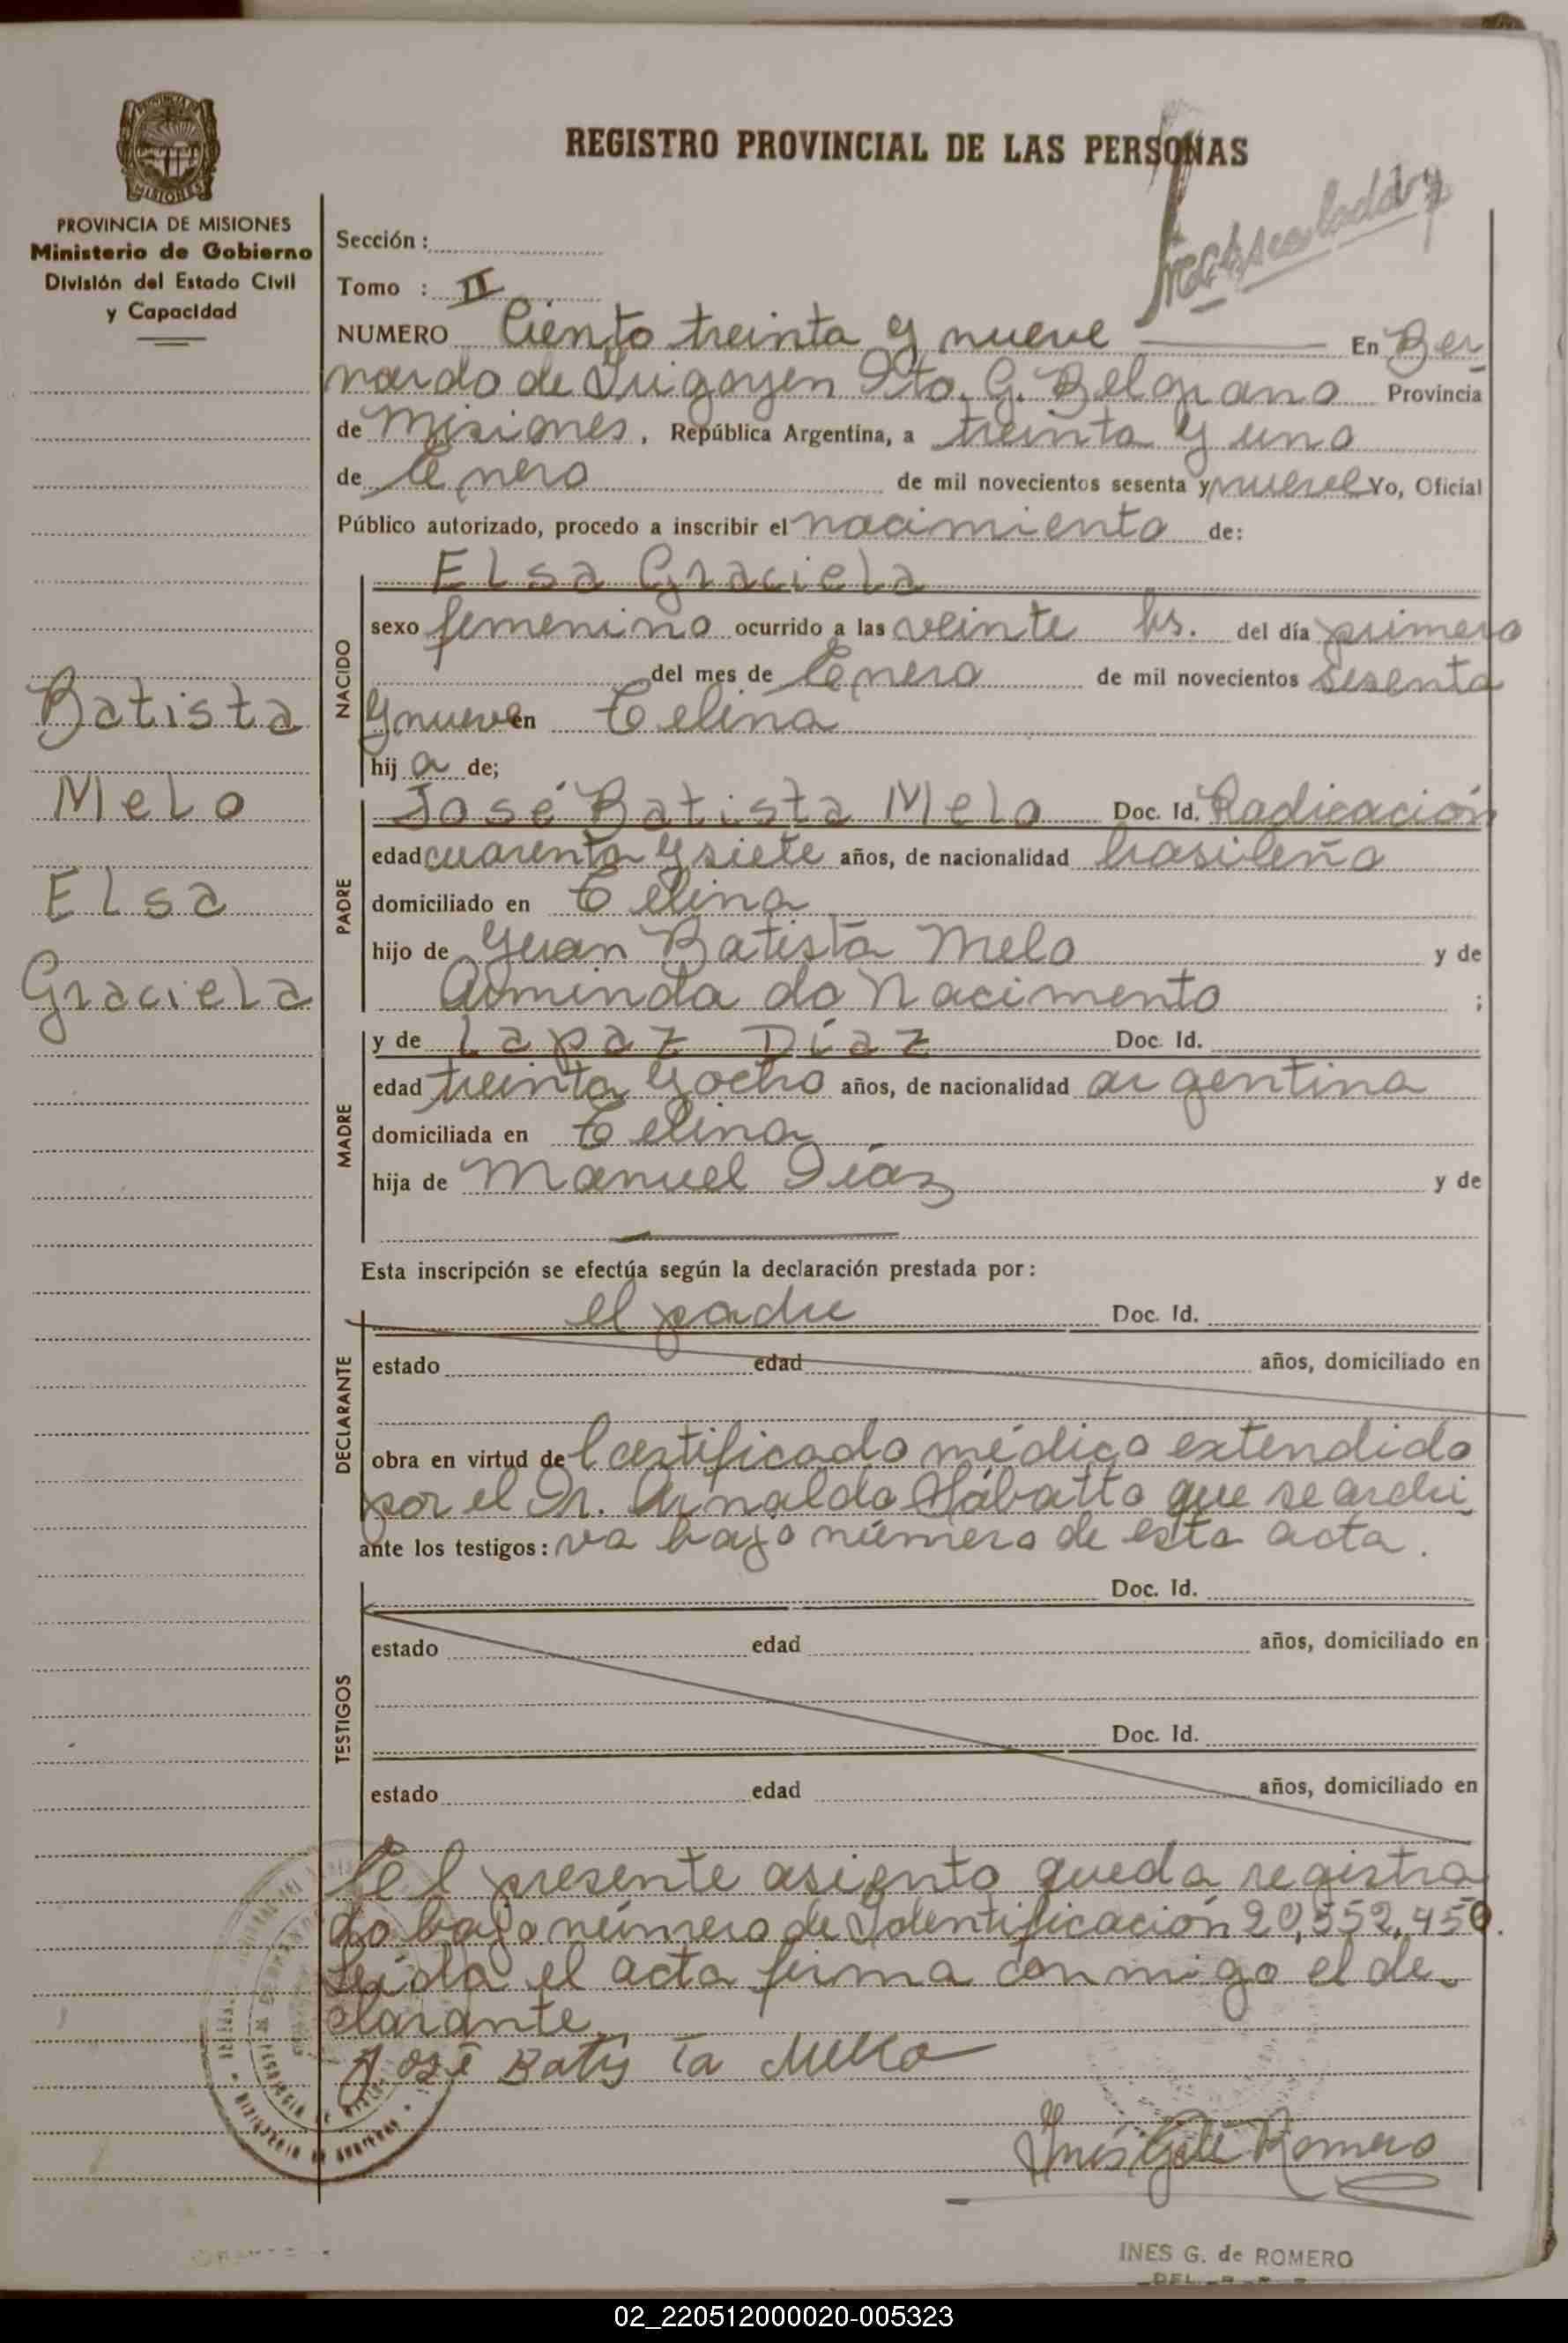 REGISTRO PROVINCIAL DE LAS PERSONAS
PROVINCIA DE MISIONES
Ministerio de Gobierno
División del Estado Civil
y Capacidad
Sección :
Tomo : II
NUMERO Ciento treinta y nueve En Ber
nardo de Irigoyen Dto. G. Belgrano Provincia
de Misiones, República Argentina, a treinta y uno
de Enero de mil novecientos sesenta y nueve Yo, Oficial
Público autorizado, procedo a inscribir el nacimiento de:
Elsa Graciela
NACIDO
sexo femenino ocurrido a las veinte hs. del día primero
del mes de Enero de mil novecientos sesenta
y nueve en Celina
hija de;
Batista
Melo
Elsa
Graciela
PADRE
José Batista Melo Doc. Id. Radicación
edad cuarenta y siete años, de nacionalidad brasileña
domiciliado en Celina
hijo de Juan Batista Melo y de
Arminda do Nacimento ;
MADRE
y de Lapaz Díaz Doc. Id.
edad treinta y ocho años, de nacionalidad argentina
domiciliada en Celina
hija de Manuel Díaz y de
Esta inscripción se efectúa según la declaración prestada por:
DECLARANTE
el padre Doc. Id.
estado edad años, domiciliado en
obra en virtud del certificado médico extendido
por el Dr. Arnaldo Sábatto que se archi
ante los testigos: va bajo número de esta acta.
TESTIGOS
Doc. Id.
estado edad años, domiciliado en
Doc. Id.
estado edad años, domiciliado en
El presente asiento queda registra
do bajo número de Identificación 20,552,450.
Leída el acta firma conmigo el de-
clarante.
José Batis ta Mello
Inés G. de Romero
INES G. de ROMERO
02_220512000020-005323